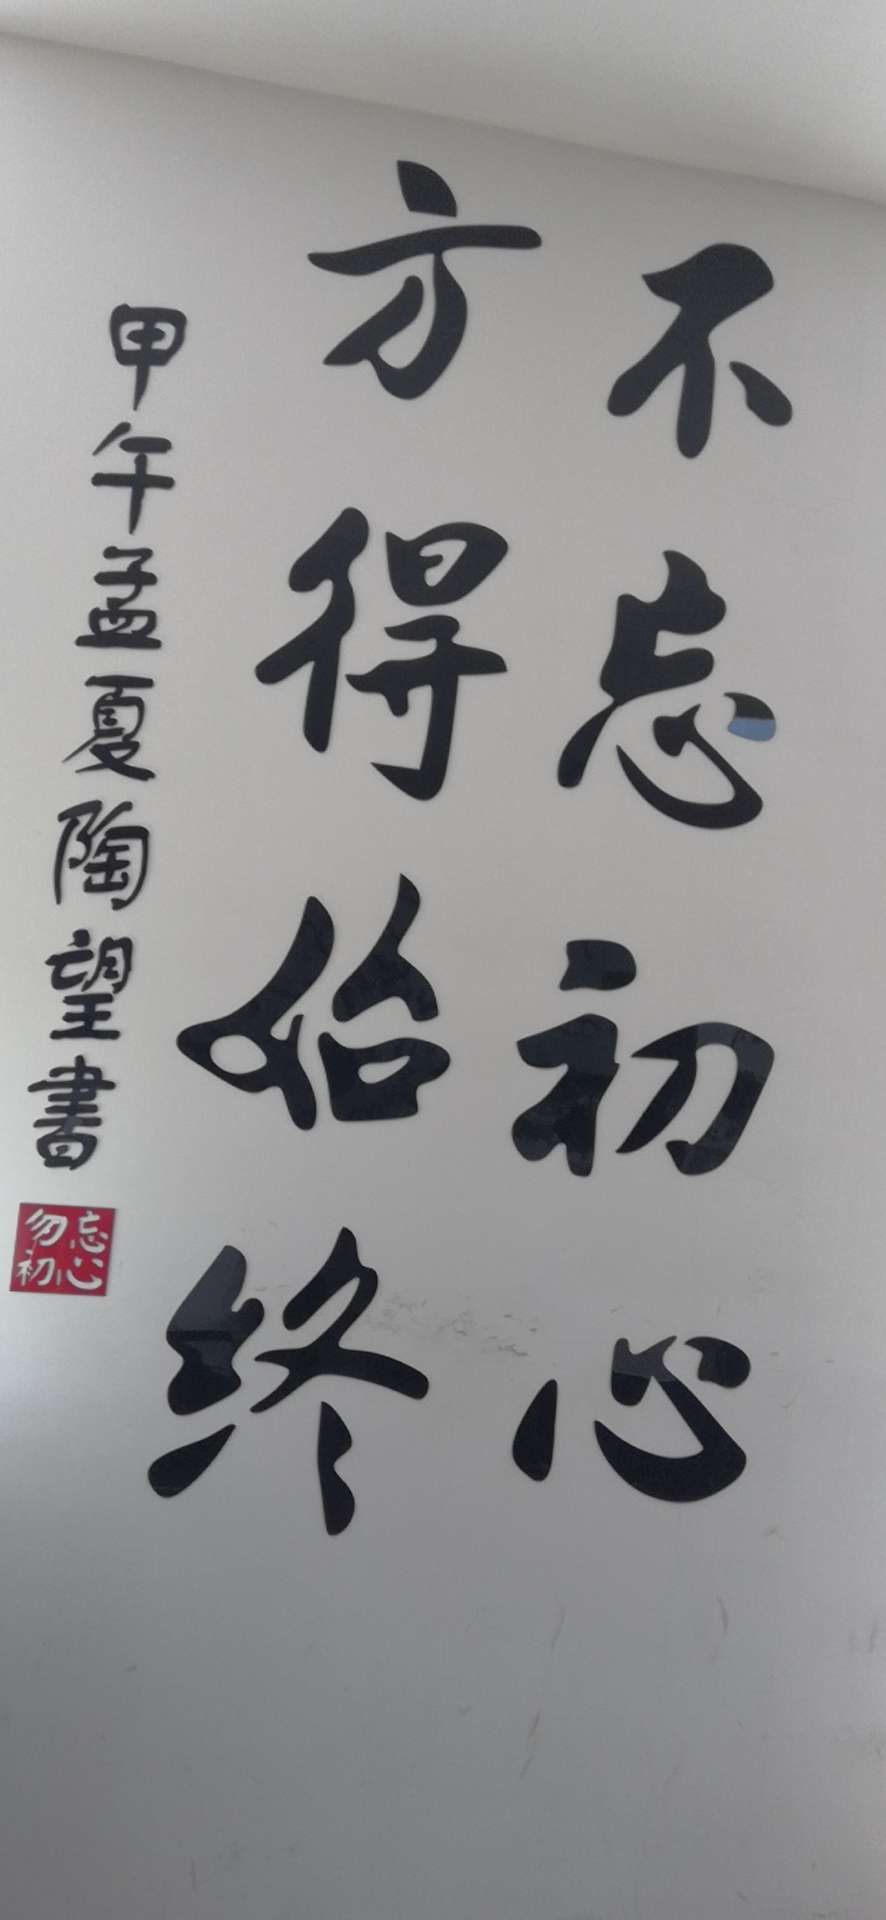 不忘初心
方得始终
甲午孟夏陶望書
忘心
勿初